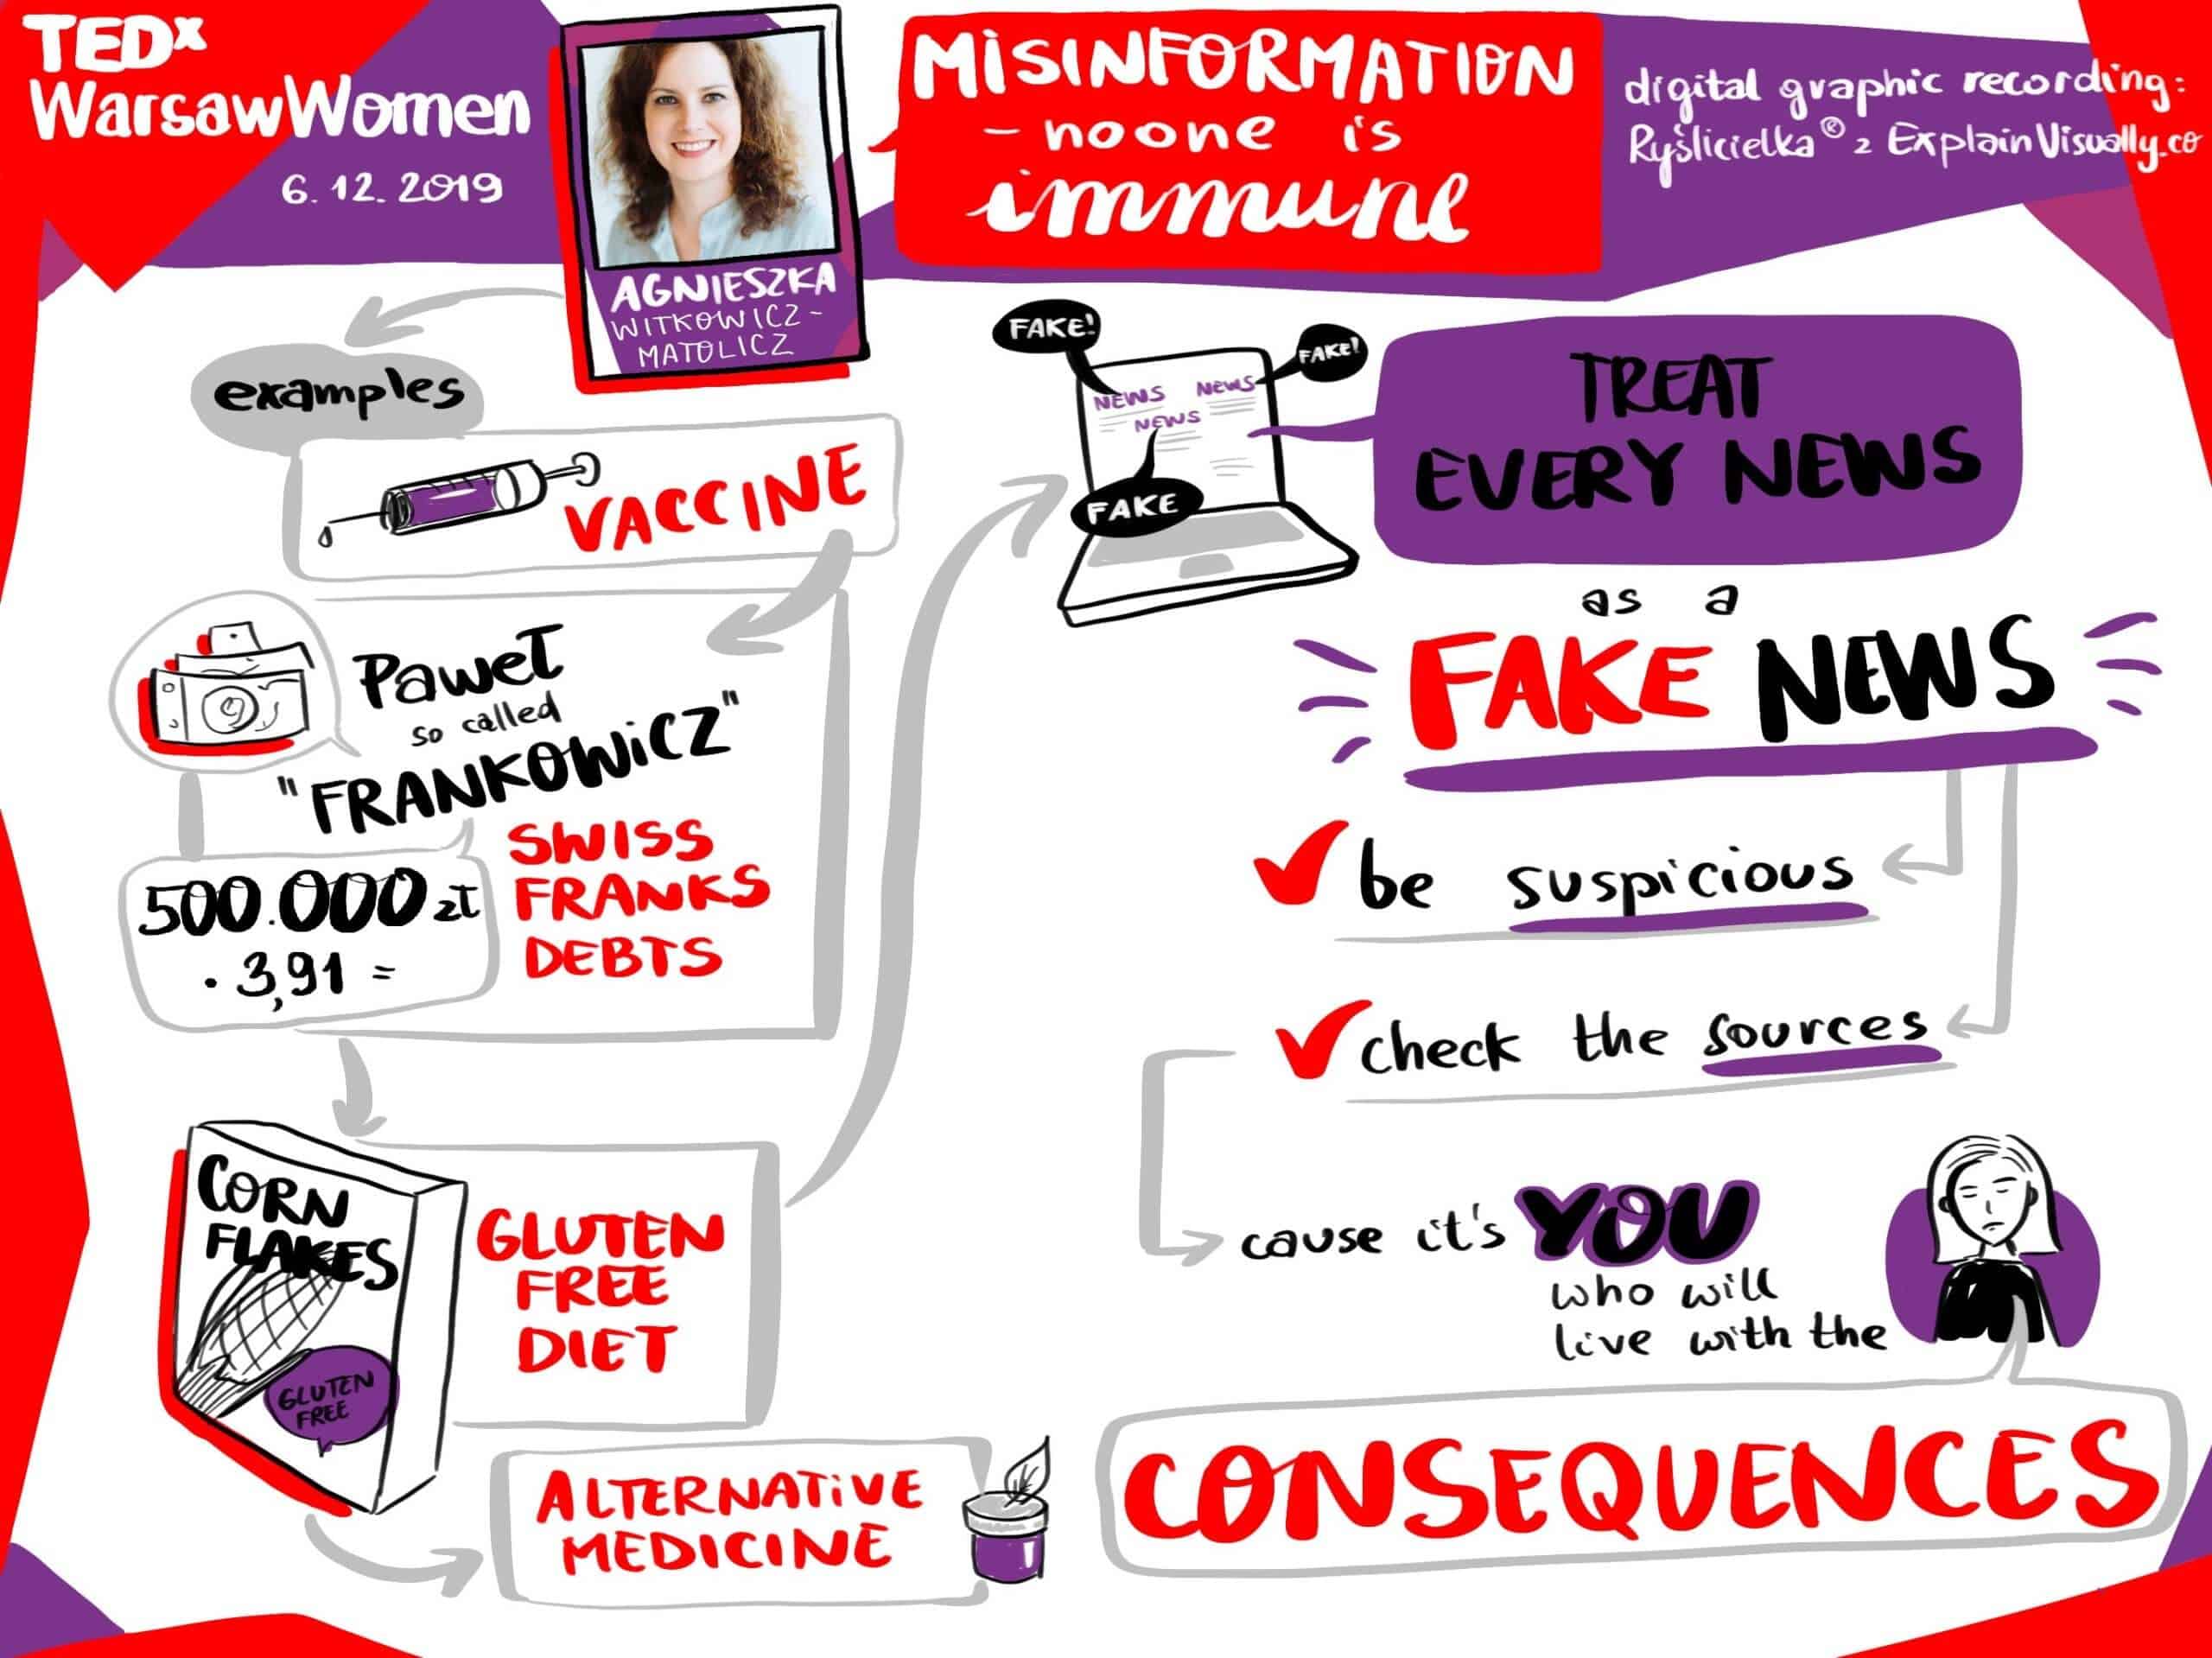 TEDx
WarsawWomen
6. 12. 2019
AGNIESZKA
WITKOWICZ-
MATOLICZ
MISINFORMATION
- noone is
immune
digital graphic recording:
Ryślicielka® z ExplainVisually.co
examples
VACCINE
Paweł
so called
"FRANKOWICZ"
500.000 zł
· 3,91 =
SWISS
FRANKS
DEBTS
CORN
FLAKES
GLUTEN
FREE
GLUTEN
FREE
DIET
ALTERNATIVE
MEDICINE
FAKE!
FAKE!
NEWS NEWS
NEWS
FAKE
TREAT
EVERY NEWS
as a
FAKE NEWS
be suspicious
check the sources
cause it's YOU
who will
live with the
CONSEQUENCES